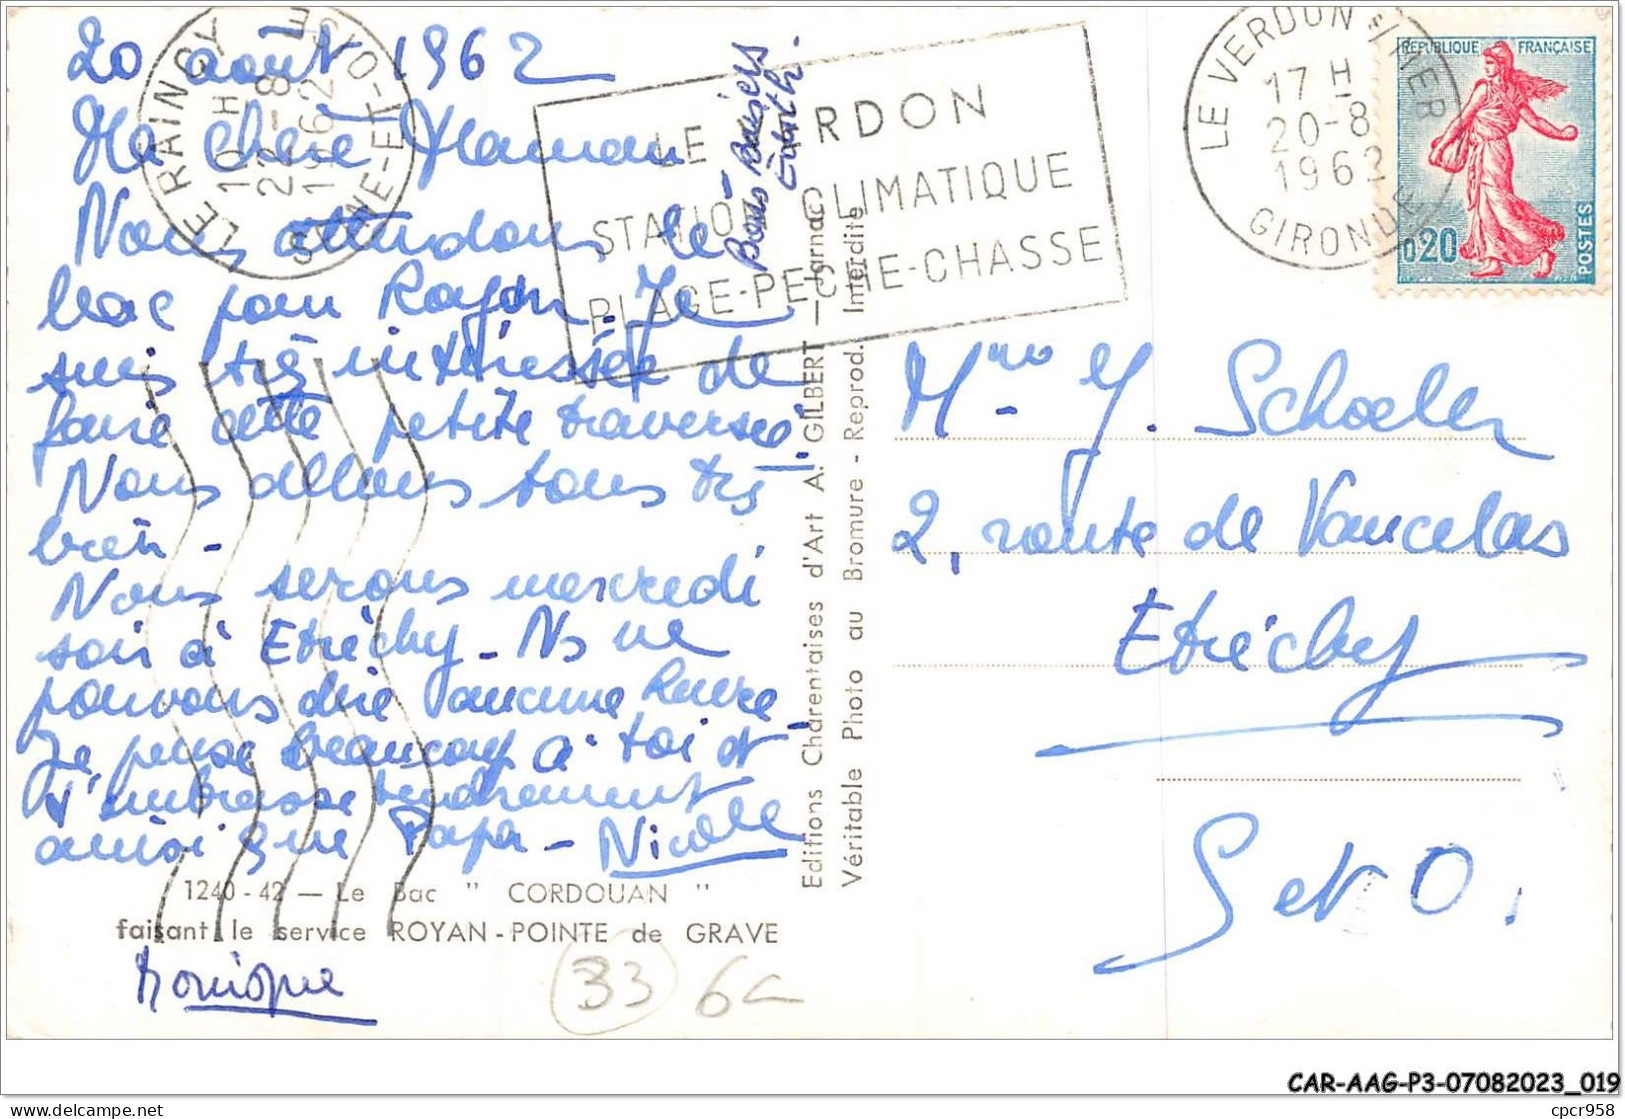 20 août 1962
Ma chère Maman
Nous attendons le
bac pour Royan. Je
suis très intéressée de
faire cette petite traversée.
Nous allons tous très
bien -
Nous serons mercredi
soir à Etréchy - Ns ne
pouvons dire aucune heure -
Je pense beaucoup à toi et
t'embrasse tendrement
ainsi que Papa - Nicole
1240 - 42 — Le Bac " CORDOUAN "
faisant le service ROYAN - POINTE de GRAVE
Monique
33 6c
Bons Baisers
LE RAINCY
10 H
22-8
1962
SEINE-ET-OISE
LE VERDON
STATION CLIMATIQUE
PLAGE-PECHE-CHASSE
LE VERDON S/MER
17 H
20-8
1962
GIRONDE
REPUBLIQUE FRANÇAISE
0,20
POSTES
Editions Charentaises d'Art A. GILBERT — Jarnac
Véritable Photo au Bromure - Reprod. Interdite
Mme Y. Schoeler
2, route de Vaucelas
Etréchy
S et O.
CAR-AAG-P3-07082023_019
delcampe.net
cpcr958